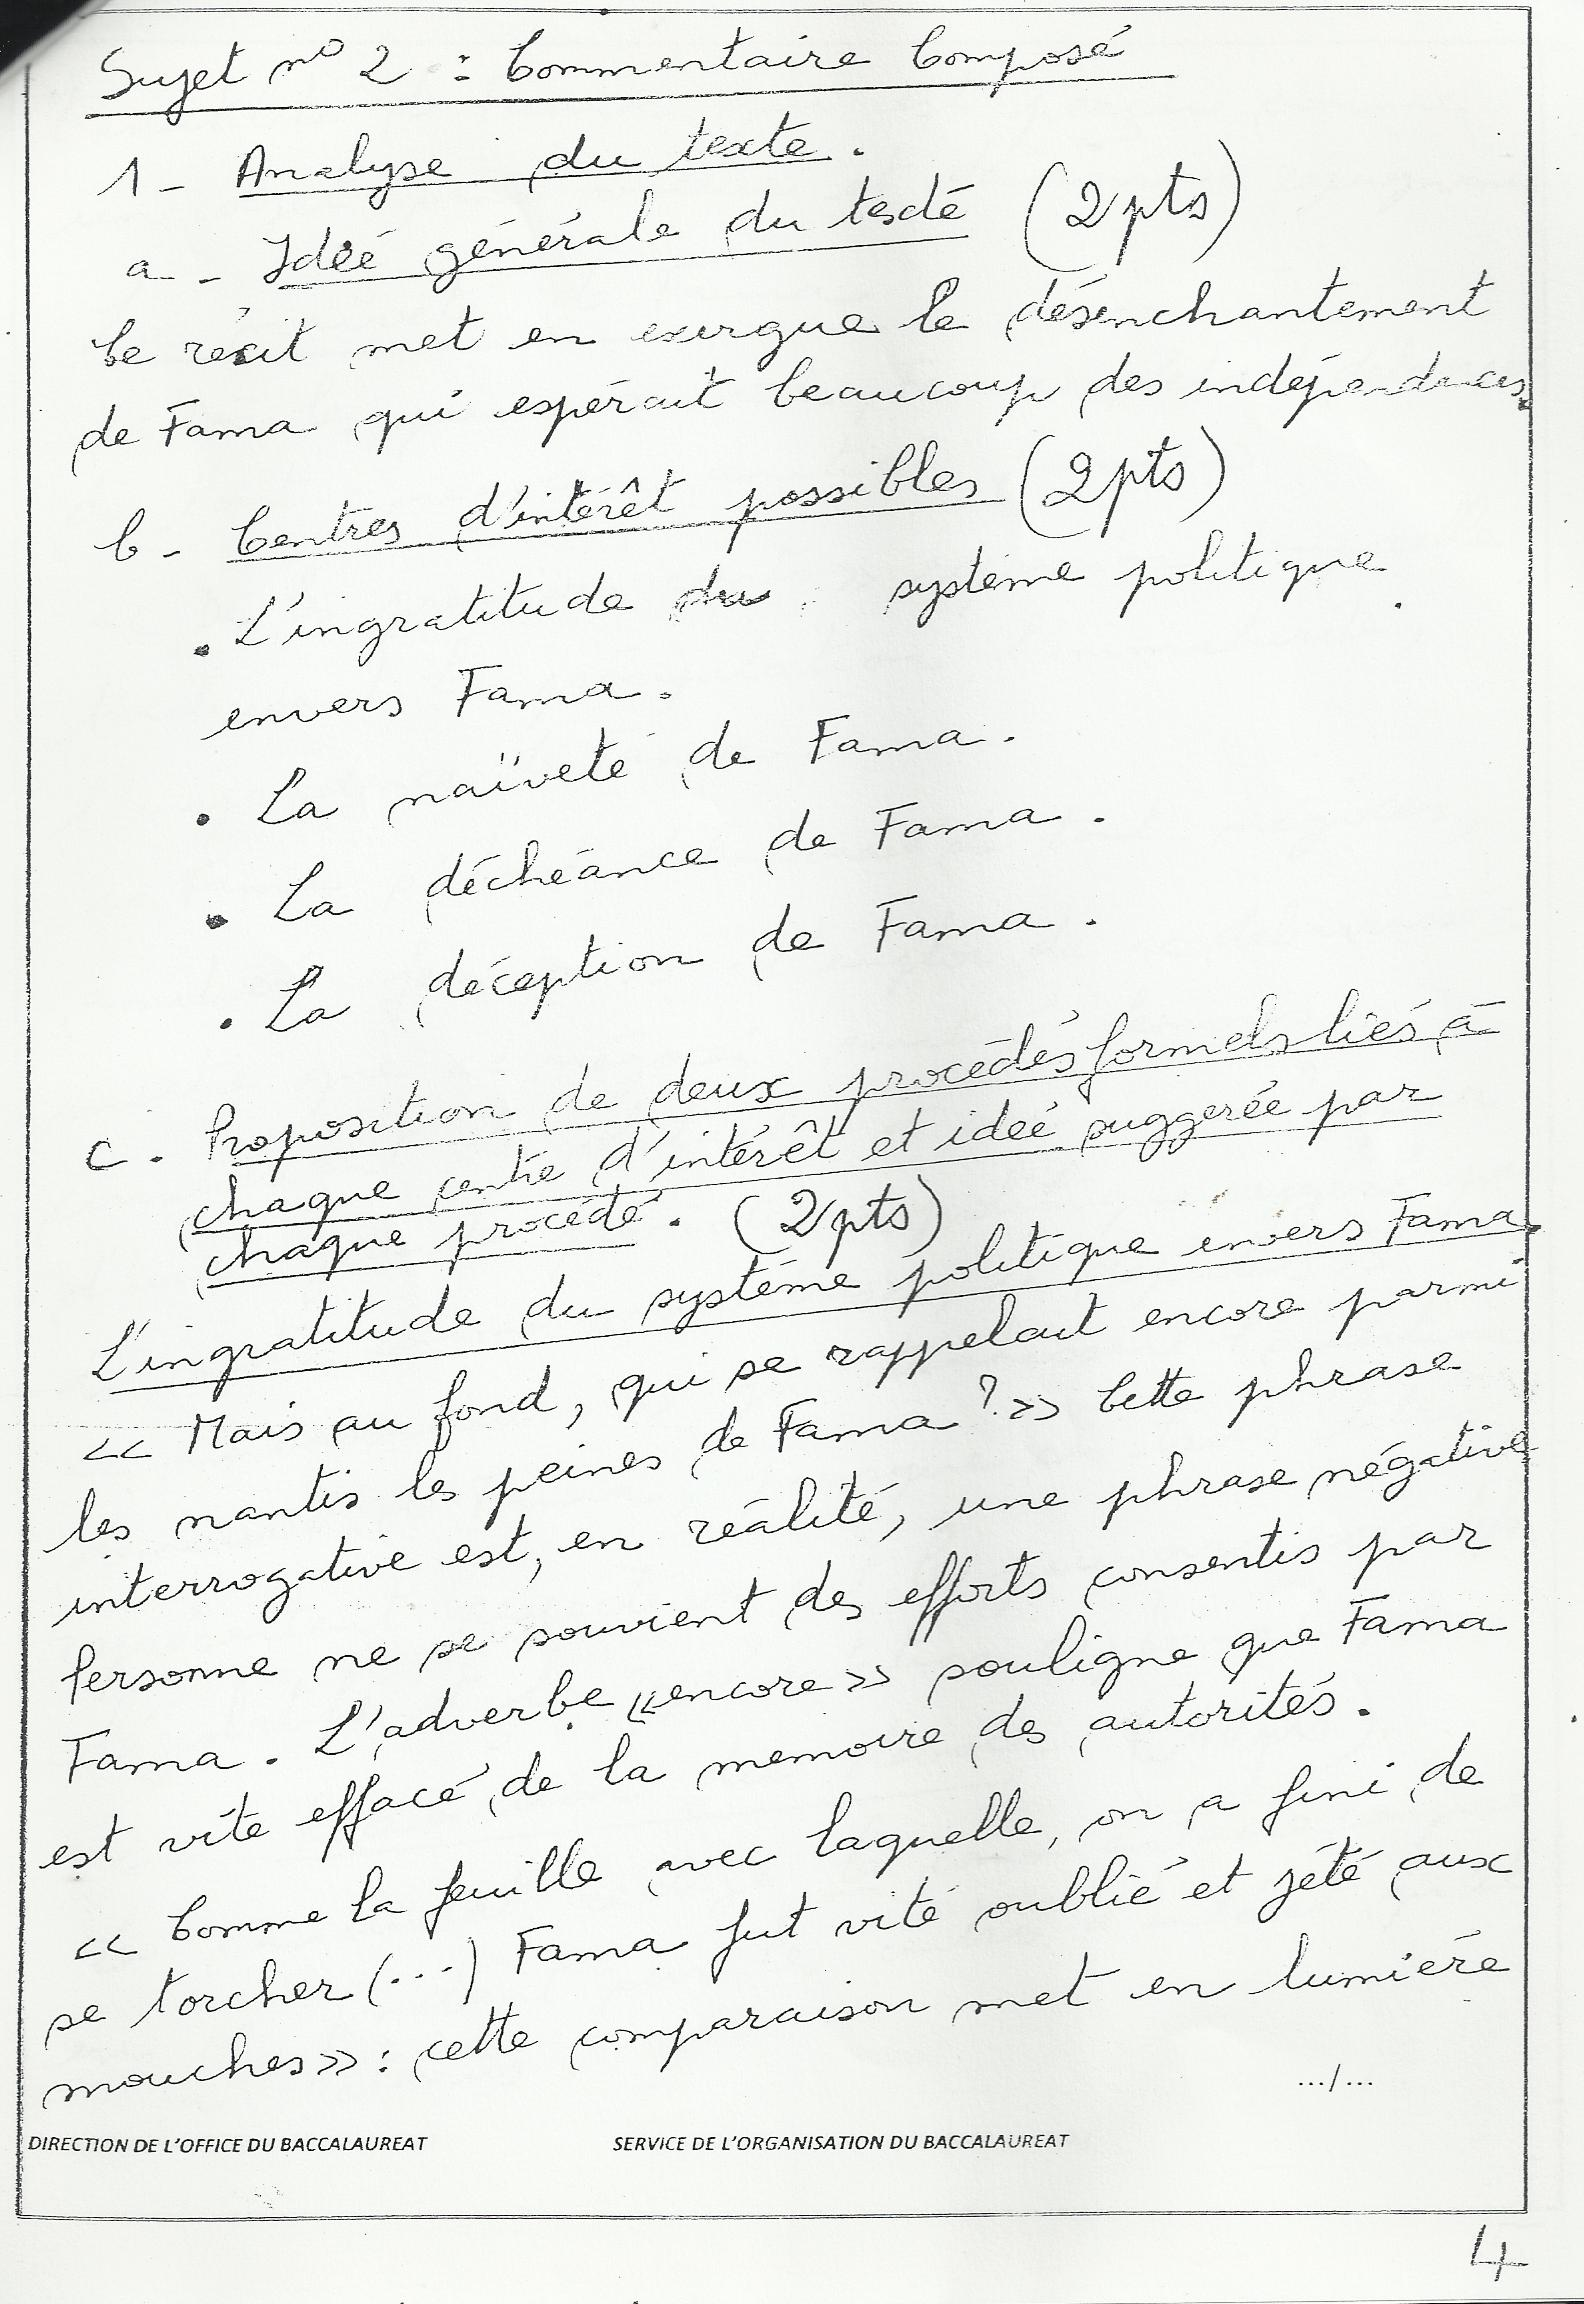 Sujet n° 2 : Commentaire Composé
1 - Analyse du texte.
a - Idée générale du texte (2pts)
Le récit met en exergue le désenchantement
de Fama qui espérait beaucoup des indépendances.
b - Centres d'intérêt possibles (2pts)
. L'ingratitude du système politique
envers Fama.
. La naïveté de Fama.
. La déchéance de Fama.
. La déception de Fama.
c. Proposition de deux procédés formels liés à
chaque centre d'intérêt et idée suggerée par
chaque procédé. (2pts)
L'ingratitude du système politique envers Fama.
<< Mais au fond, qui se rappelait encore parmi
les nantis les peines de Fama ? >> Cette phrase
interrogative est, en réalité, une phrase négative
Personne ne se souvient des efforts consentis par
Fama. L'adverbe <<encore>> souligne que Fama
est vite effacé de la memoire des autorités.
<< Comme la feuille avec laquelle, on a fini de
se torcher (...) Fama fut vite oublié et jété aux
mouches>> : cette comparaison met en lumière
.../...
DIRECTION DE L'OFFICE DU BACCALAUREAT SERVICE DE L'ORGANISATION DU BACCALAUREAT
4